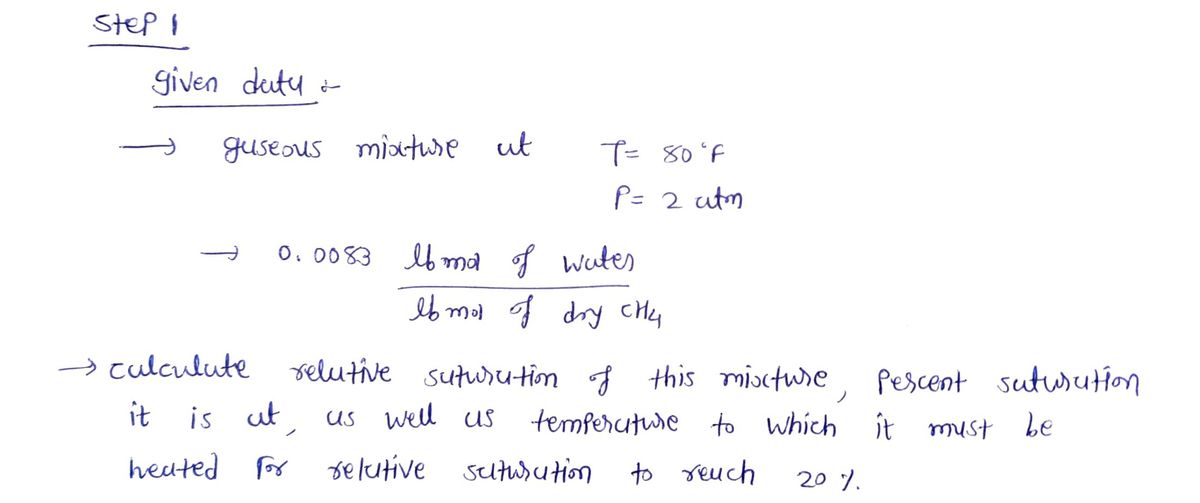 Step 1
given data :-
→ gaseous mixture at T= 80°F
P= 2 atm
→ 0.0083 lb mol of water
lb mol of dry CH4
→ calculate relative saturation of this mixture, percent saturation
it is at, as well as temperature to which it must be
heated for relative saturation to reach 20 %.